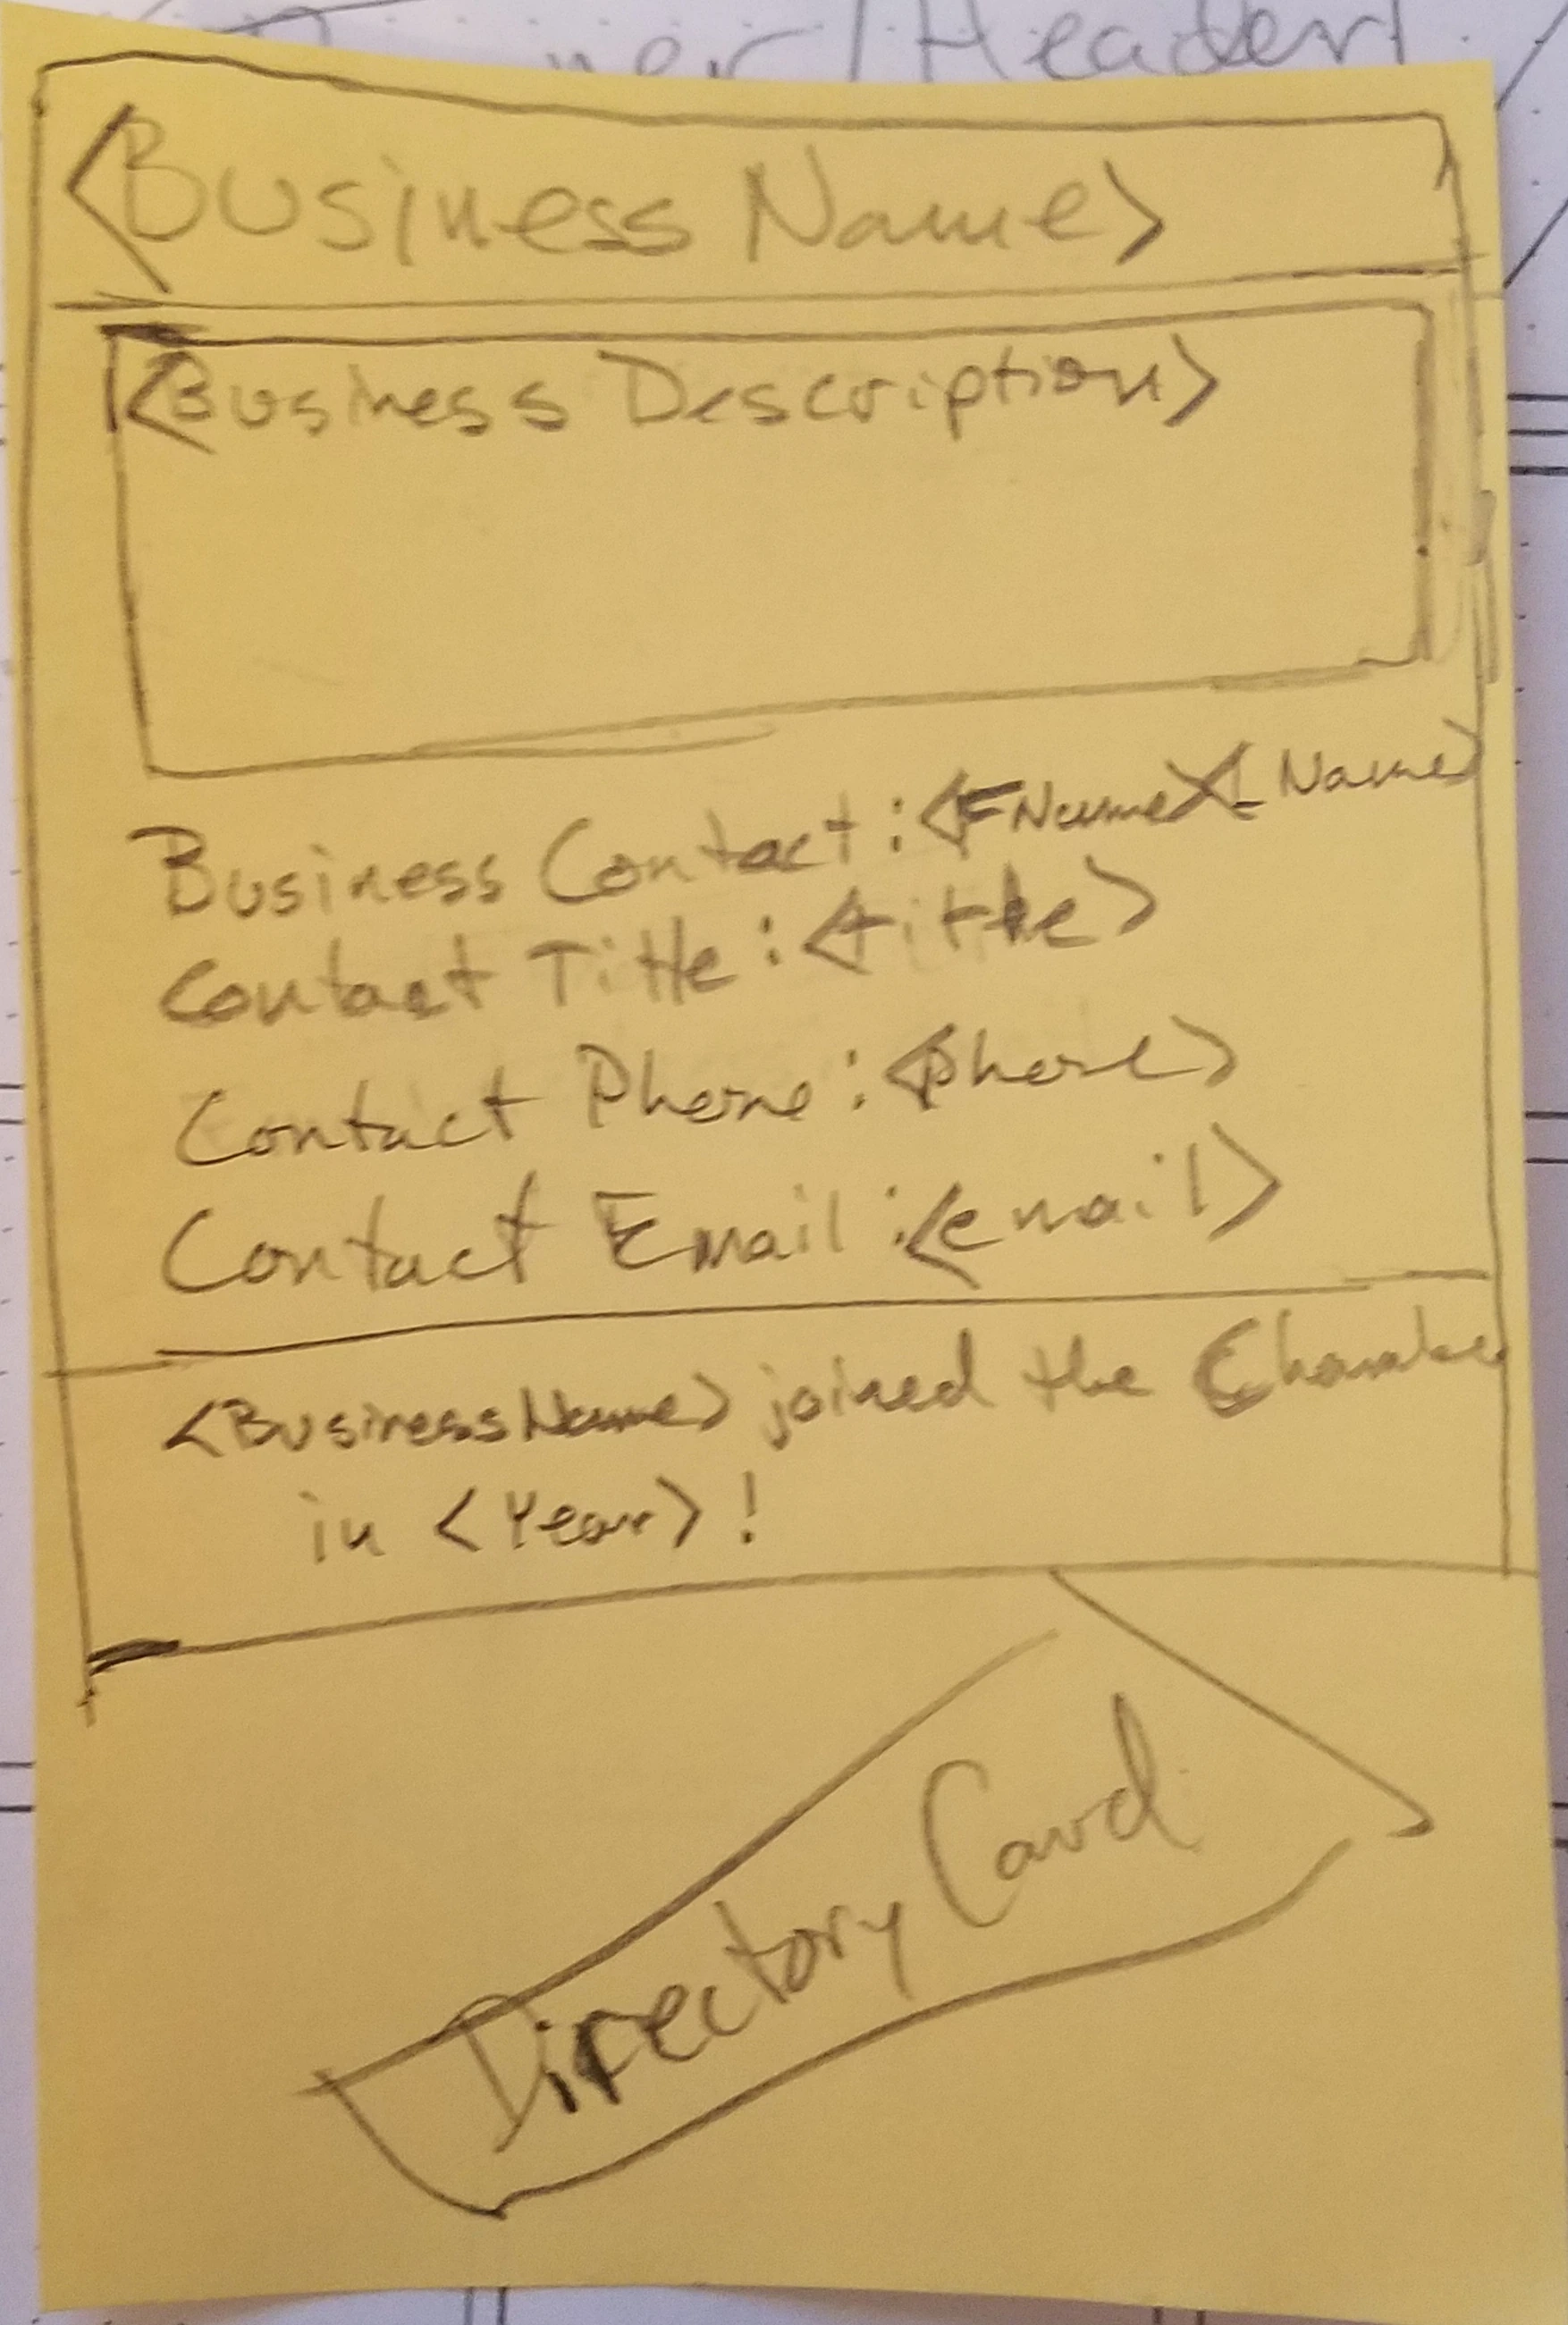 /Header
<Business Name>
<Business Description>
Business Contact: <FName><LName>
Contact Title: <title>
Contact Phone: <phone>
Contact Email: <email>
<BusinessName> joined the Chamber
in <Year>!
Directory Card